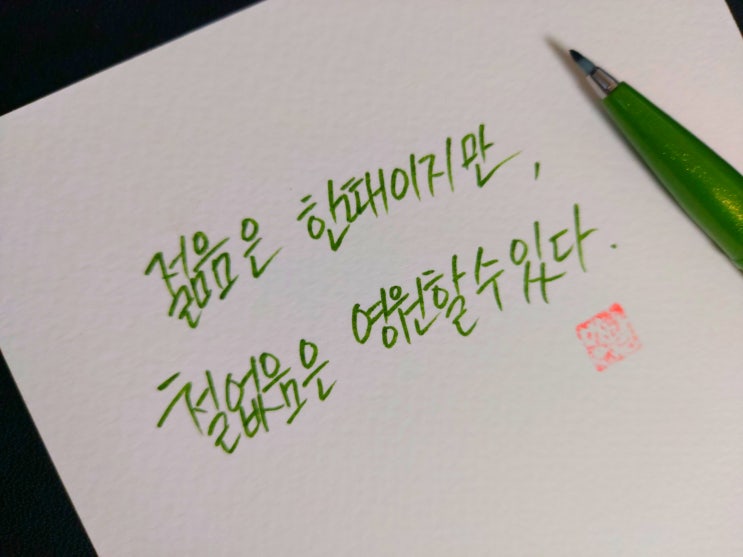 젊음은 한때이지만,
철없음은 영원할 수 있다.